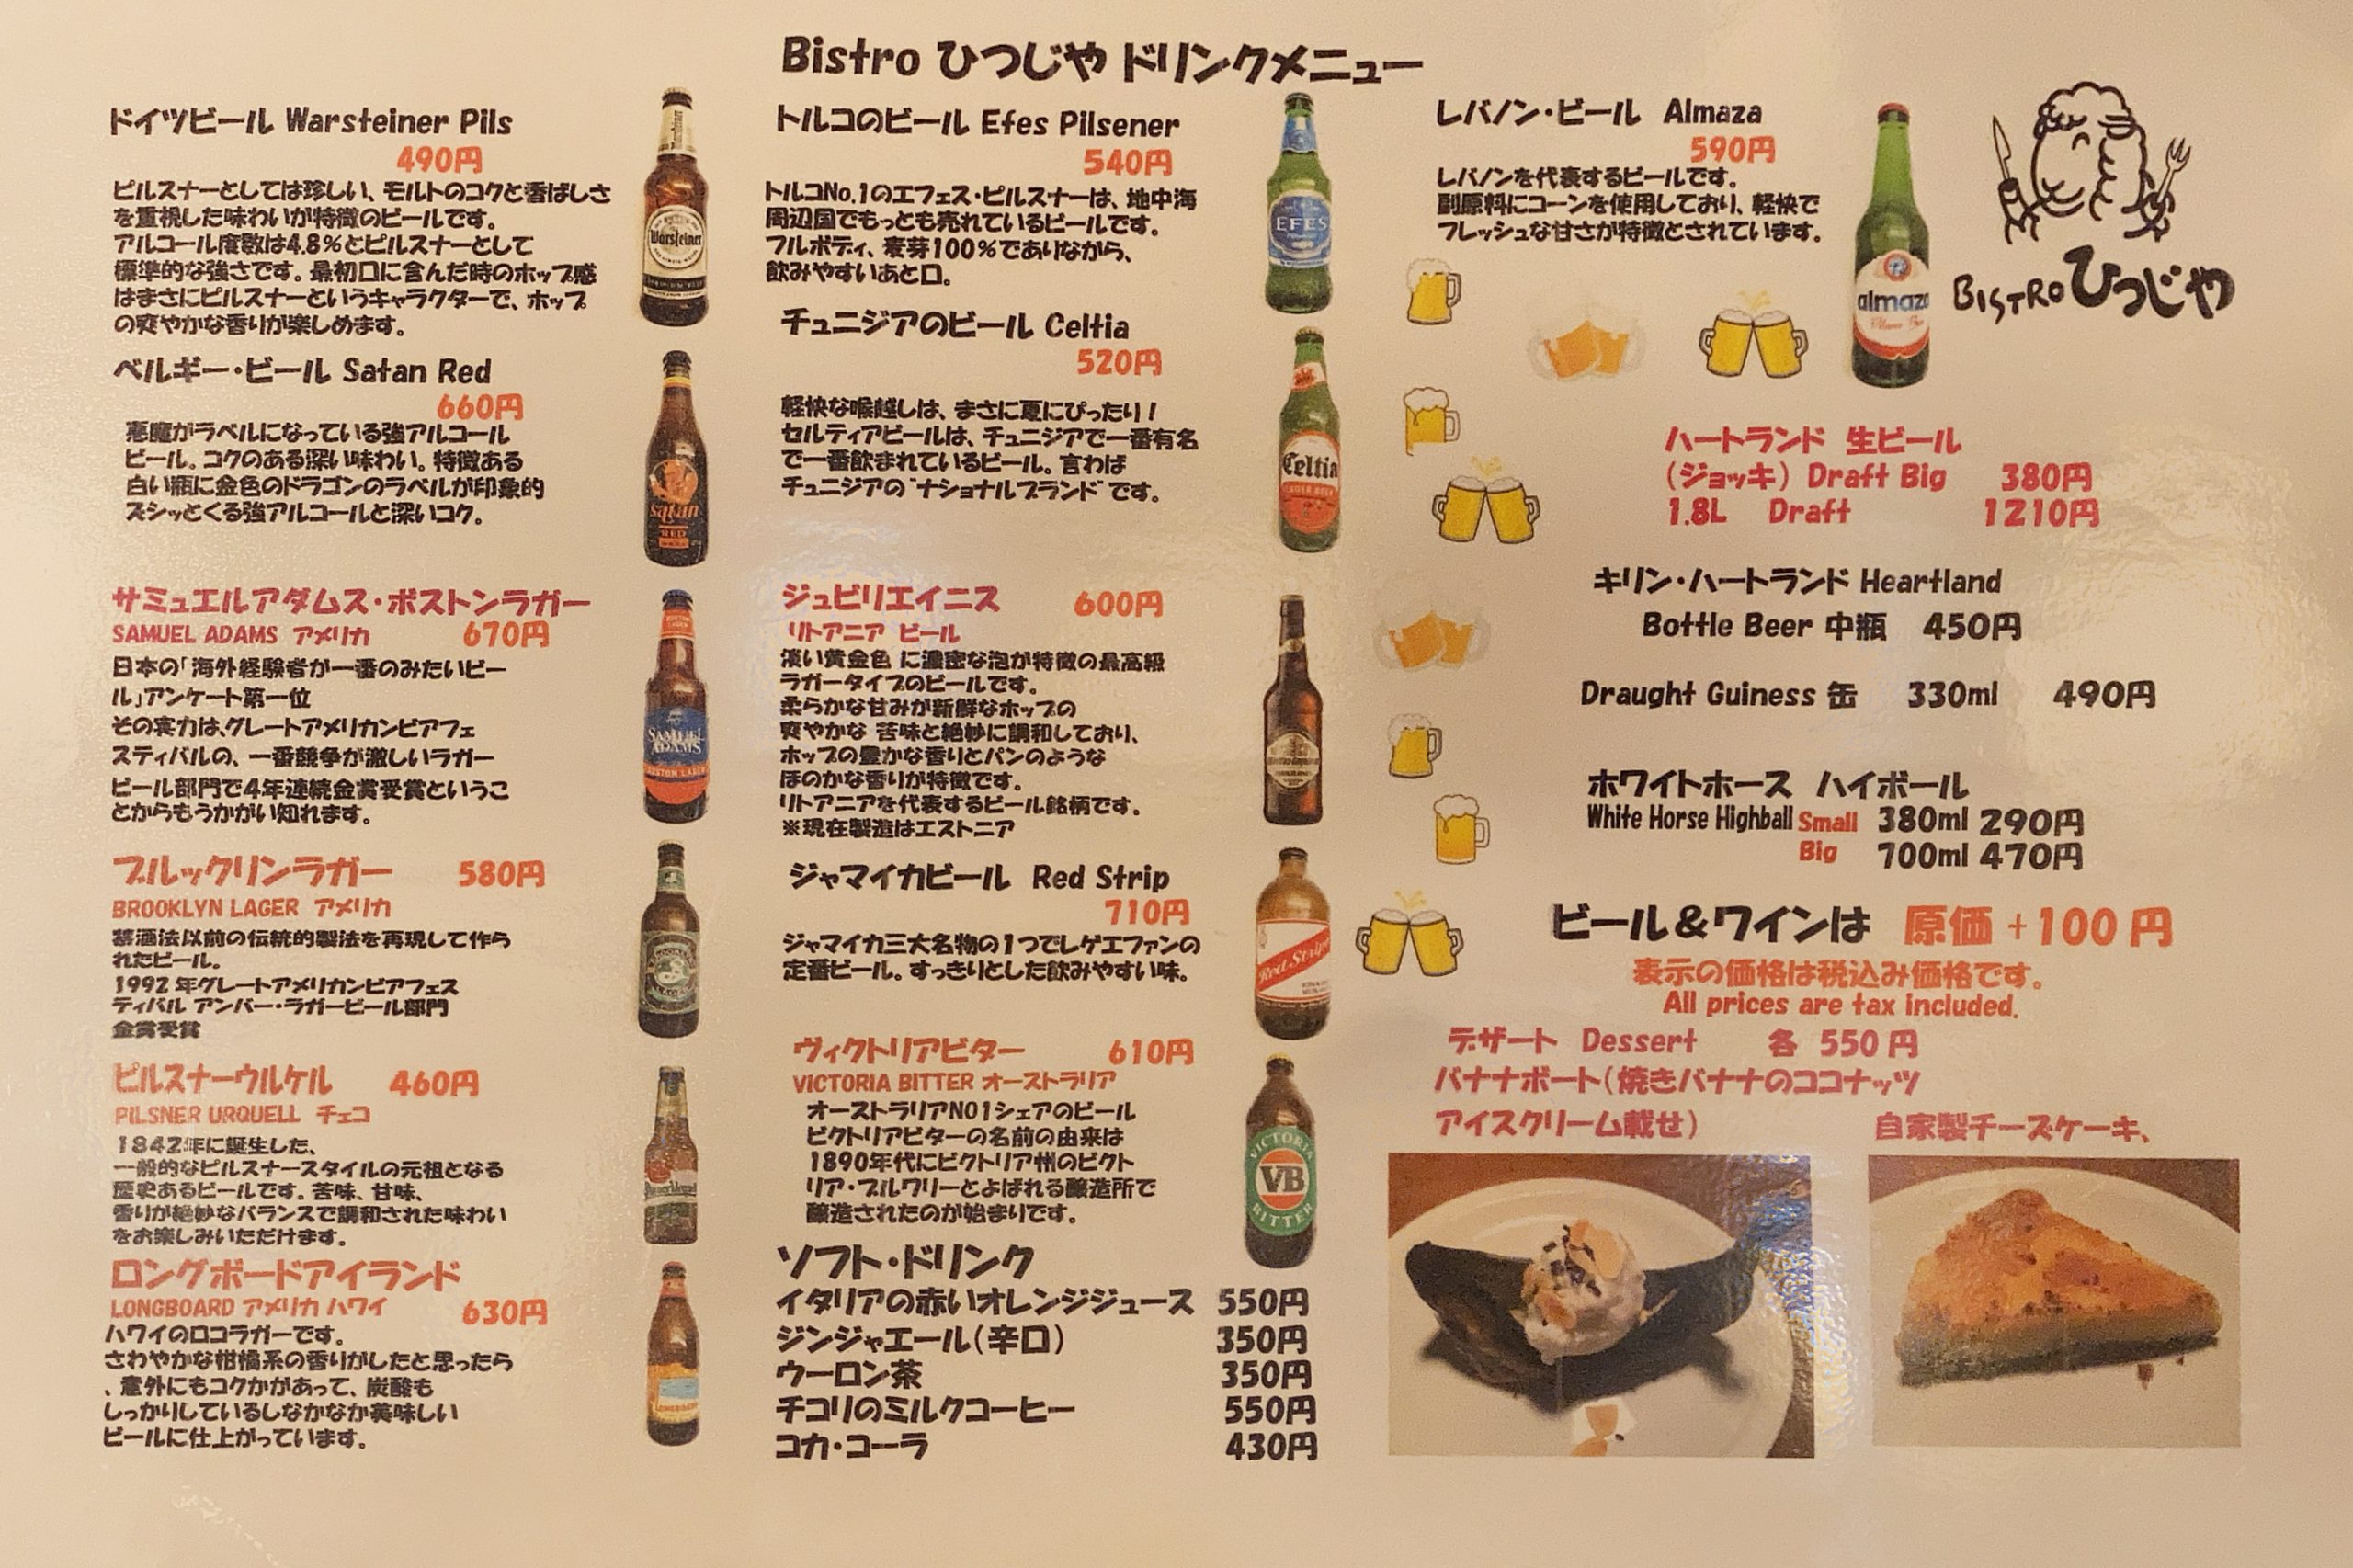 Bistro ひつじや ドリンクメニュー
ドイツビール Warsteiner Pils
490円
ピルスナーとしては珍しい、モルトのコクと香ばしさ
を重視した味わいが特徴のビールです。
アルコール度数は4.8%とピルスナーとして
標準的な強さです。最初口に含んだ時のホップ感
はまさにピルスナーというキャラクターで、ホップ
の爽やかな香りが楽しめます。
Warsteiner
ベルギー・ビール Satan Red
660円
悪魔がラベルになっている強アルコール
ビール。コクのある深い味わい。特徴ある
白い瓶に金色のドラゴンのラベルが印象的
ズシッとくる強アルコールと深いコク。
satan
RED
サミュエルアダムス・ボストンラガー
SAMUEL ADAMS アメリカ 670円
日本の「海外経験者が一番のみたいビー
ル」アンケート第一位
その実力は、グレートアメリカンビアフェ
スティバルの、一番競争が激しいラガー
ビール部門で4年連続金賞受賞というこ
とからもうかがい知れます。
SAMUEL
ADAMS
BOSTON LAGER
ブルックリンラガー 580円
BROOKLYN LAGER アメリカ
禁酒法以前の伝統的製法を再現して作ら
れたビール。
1992 年グレートアメリカンビアフェス
ティバル アンバー・ラガービール部門
金賞受賞
ピルスナーウルケル 460円
PILSNER URQUELL チェコ
1842年に誕生した、
一般的なピルスナースタイルの元祖となる
歴史あるビールです。苦味、甘味、
香りが絶妙なバランスで調和された味わい
をお楽しみいただけます。
ロングボードアイランド
LONGBOARD アメリカ ハワイ 630円
ハワイのロコラガーです。
さわやかな柑橘系の香りがしたと思ったら
、意外にもコクかがあって、炭酸も
しっかりしているしなかなか美味しい
ビールに仕上がっています。
LONGBOARD
トルコのビール Efes Pilsener
540円
トルコNo.1のエフェス・ピルスナーは、地中海
周辺国でもっとも売れているビールです。
フルボディ、麦芽100%でありながら、
飲みやすいあと口。
EFES
チュニジアのビール Celtia
520円
軽快な喉越しは、まさに夏にぴったり!
セルティアビールは、チュニジアで一番有名
で一番飲まれているビール。言わば
チュニジアの"ナショナルブランド"です。
Celtia
ジュビリエイニス 600円
リトアニア ビール
淡い黄金色 に濃密な泡が特徴の最高級
ラガータイプのビールです。
柔らかな甘みが新鮮なホップの
爽やかな 苦味と絶妙に調和しており、
ホップの豊かな香りとパンのような
ほのかな香りが特徴です。
リトアニアを代表するビール銘柄です。
※現在製造はエストニア
ジャマイカビール Red Strip
710円
ジャマイカ三大名物の1つでレゲエファンの
定番ビール。すっきりとした飲みやすい味。
Red Stripe
ヴィクトリアビター 610円
VICTORIA BITTER オーストラリア
オーストラリアNO1シェアのビール
ビクトリアビターの名前の由来は
1890年代にビクトリア州のビクト
リア・ブルワリーとよばれる醸造所で
醸造されたのが始まりです。
VICTORIA
VB
BITTER
ソフト・ドリンク
イタリアの赤いオレンジジュース 550円
ジンジャエール(辛口) 350円
ウーロン茶 350円
チコリのミルクコーヒー 550円
コカ・コーラ 430円
レバノン・ビール Almaza
590円
レバノンを代表するビールです。
副原料にコーンを使用しており、軽快で
フレッシュな甘さが特徴とされています。
almaza
BISTRO ひつじや
ハートランド 生ビール
(ジョッキ) Draft Big 380円
1.8L Draft 1210円
キリン・ハートランド Heartland
Bottle Beer 中瓶 450円
Draught Guiness 缶 330ml 490円
ホワイトホース ハイボール
White Horse Highball Small 380ml 290円
Big 700ml 470円
ビール&ワインは 原価 +100 円
表示の価格は税込み価格です。
All prices are tax included.
デザート Dessert 各 550 円
バナナボート(焼きバナナのココナッツ
アイスクリーム載せ) 自家製チーズケーキ、